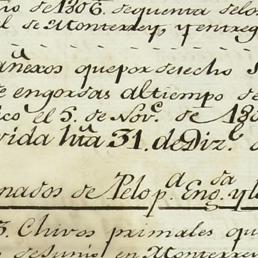 de 1806 de quenta delos
l de Monterrey, y entreg
añexos que por desecho
e engordas al tiempo de
ico el 5. de Nov.e de 180
vida hta 31. de Diz.
nados de Pelo p.a Eng.da y l
5. Chivos primales qu
de Junio en Monterrey